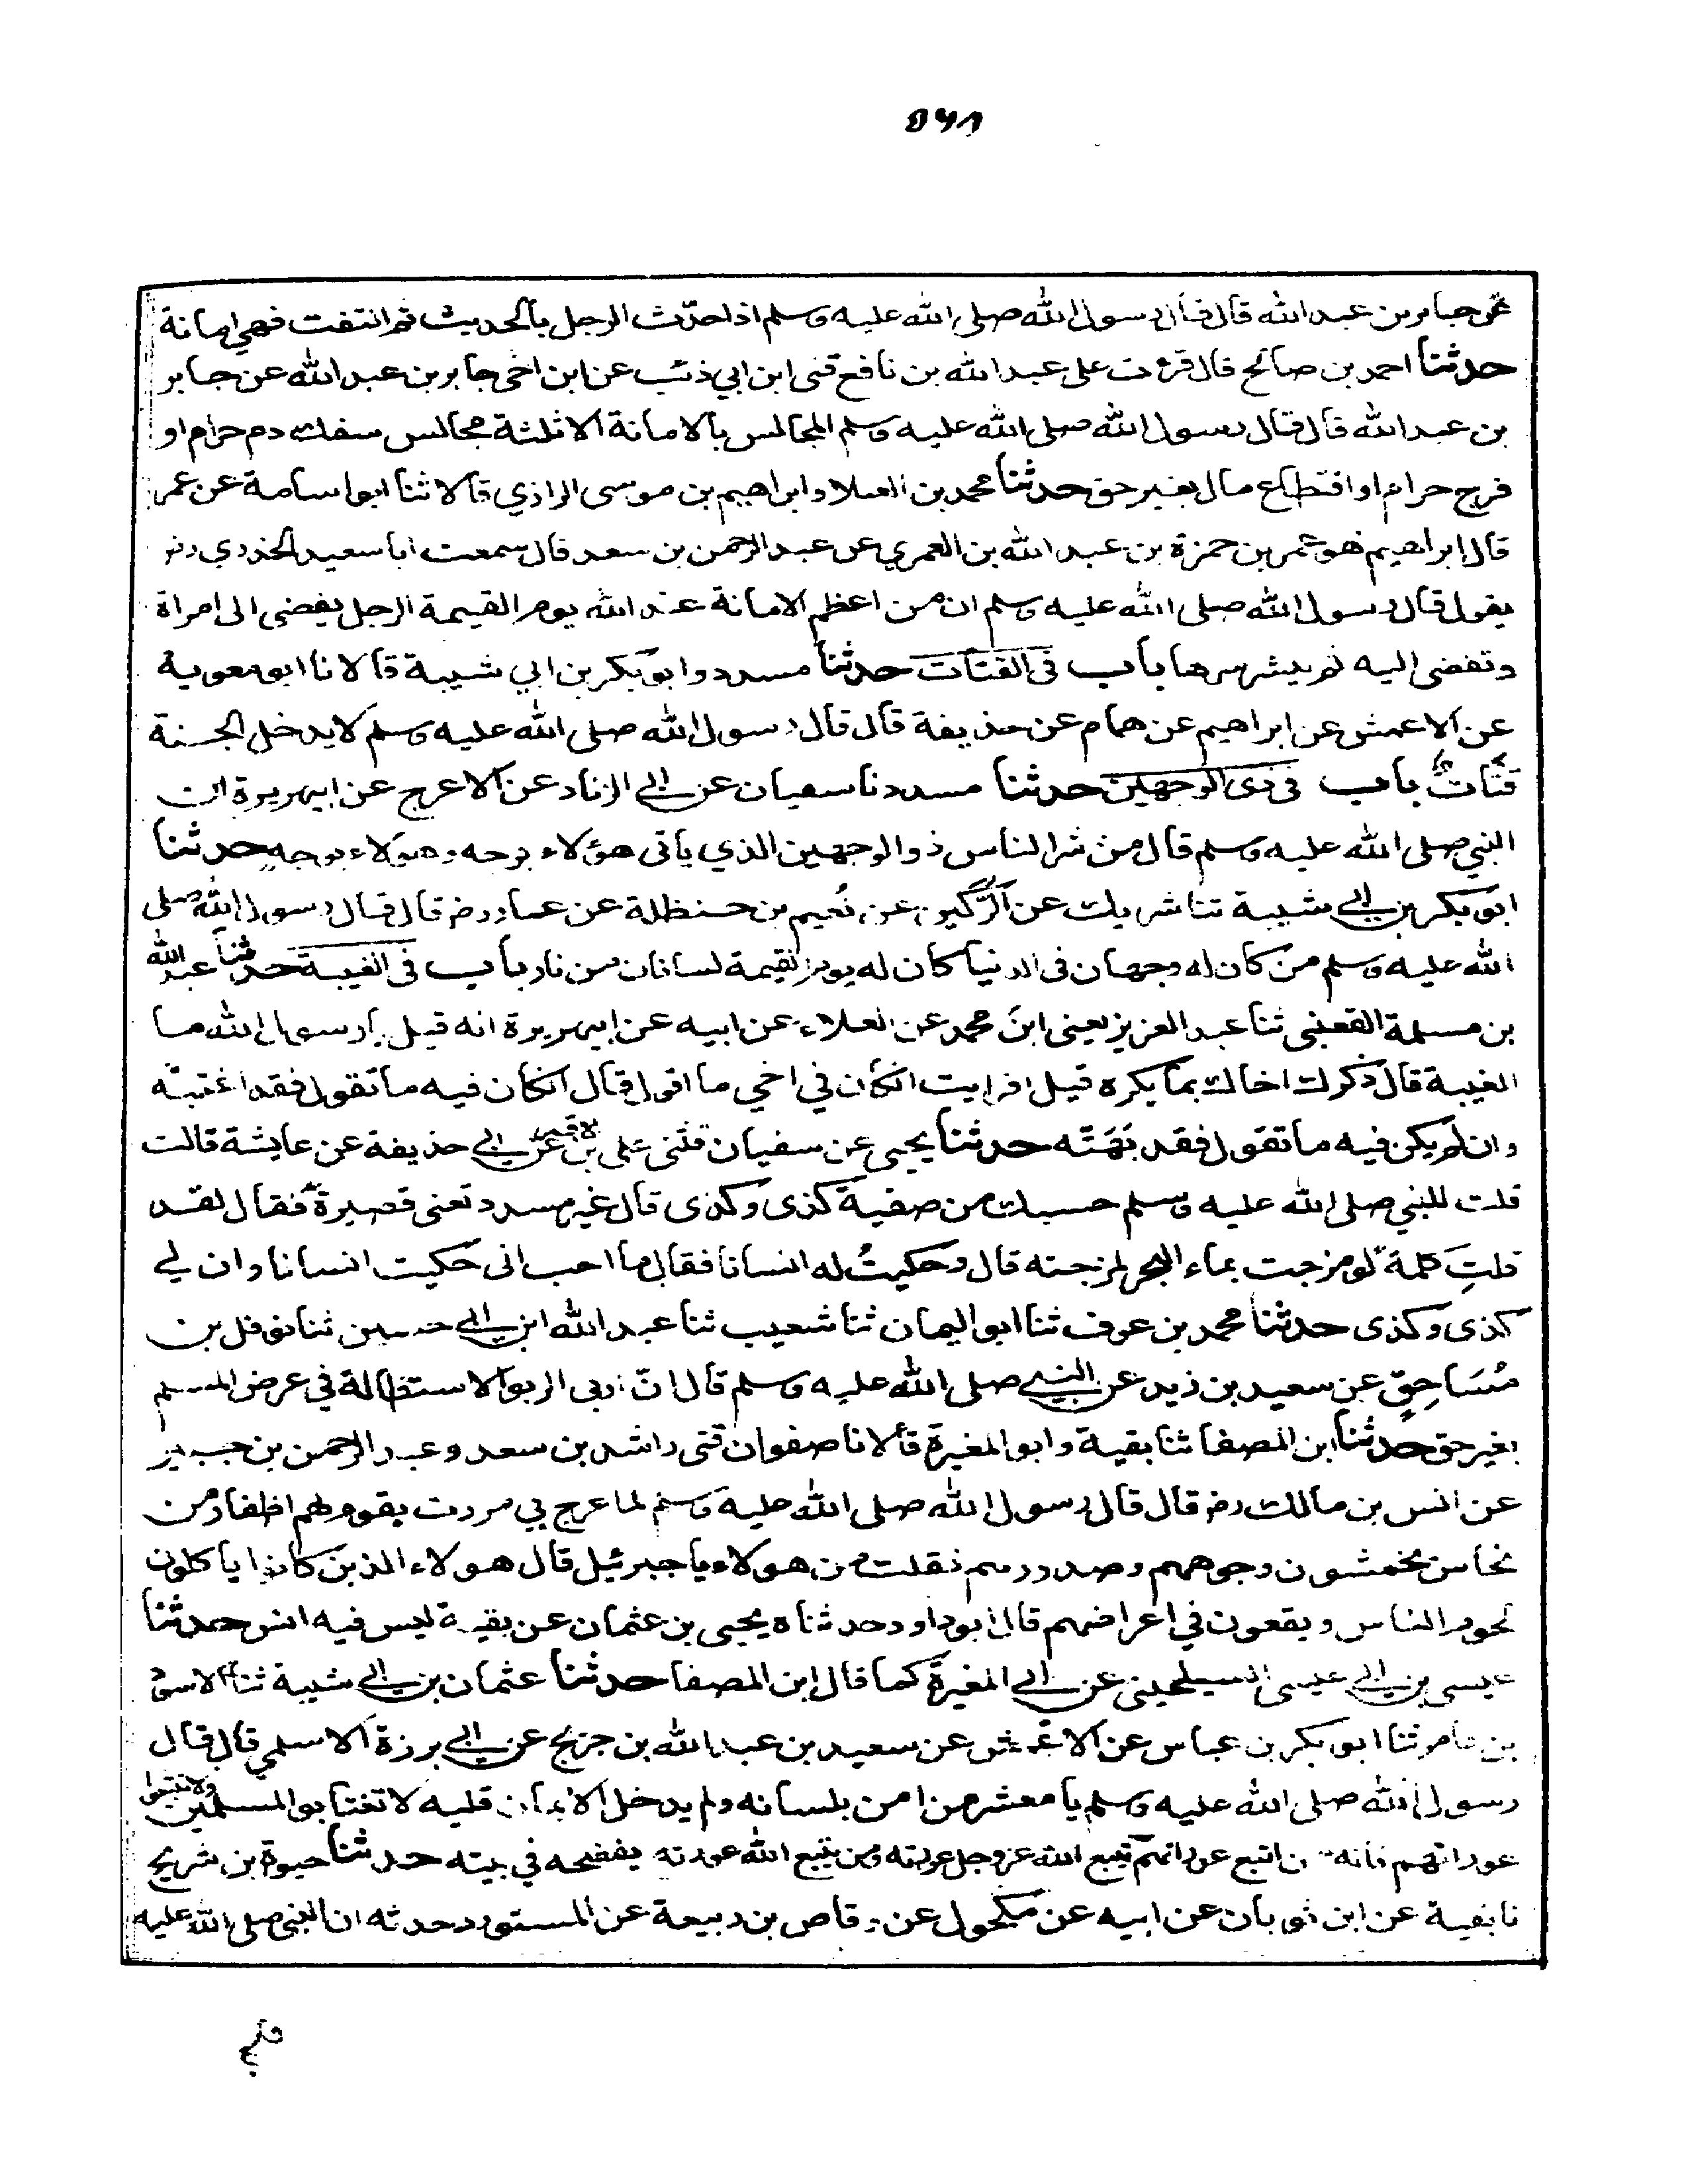 ٥٩٨
عن جابر بن عبد الله قال قال رسول الله صلى الله عليه وسلم اذا حدّث الرجل بالحديث ثم التفت فهي امانة
حدثنا احمد بن صالح قال قرءت على عبد الله بن نافع قنى ابن ابي ذئب عن ابن اخى جابر بن عبد الله عن جابر
بن عبد الله قال قال رسول الله صلى الله عليه وسلم المجالس بالامانة الا ثلثة مجالس سفك دم حرام او
فرج حرام او اقتطاع مال بغير حق حدثنا محمد بن العلاء وابراهيم بن موسى الرازي قالا ثنا ابو اسامة عن عمر
قال ابراهيم هو عمر بن حمزة بن عبد الله بن العمري عن عبد الرحمن بن سعد قال سمعت ابا سعيد الخدري رض
يقول قال رسول الله صلى الله عليه وسلم ان من اعظم الامانة عند الله يوم القيمة الرجل يفضى الى امراة
وتفضى اليه ثم ينشر سرها باب فى القتات حدثنا مسدد وابو بكر بن ابي شيبة قالا نا ابو معوية
عن الاعمش عن ابراهيم عن همام عن حذيفة قال قال رسول الله صلى الله عليه وسلم لا يدخل الجنة
قتّاتٌ باب فى ذى الوجهين حدثنا مسدد نا سفيان عن ابي الزناد عن الاعرج عن ابيهريرة ان
النبي صلى الله عليه وسلم قال من شر الناس ذو الوجهين الذي ياتى هؤلاء بوجه وهؤلاء بوجهٍ حدثنا
ابو بكر بن ابي شيبة ثنا شريك عن الرُّكين عن نُعيم بن حنظلة عن عمار رض قال قال رسول الله صلى
الله عليه وسلم من كان له وجهان فى الدنيا كان له يوم القيمة لسانان من نار باب فى الغيبة حدثنا عبد الله
بن مسلمة القعنبى ثنا عبد العزيز يعنى ابن محمد عن العلاء عن ابيه عن ابيهريرة انه قيل يا رسول الله ما
الغيبة قال ذكرك اخاك بما يكره قيل افرايت انكان في اخي ما اقول قال انكان فيه ما تقول فقد اغتبته
وان لم يكن فيه ما تقول فقد بَهَتَّه حدثنا يحيى عن سفيان قثنى على بن الاقمر عن ابي حذيفة عن عايشة قالت
قلت للنبي صلى الله عليه وسلم حسبك من صفية كذى وكذى قال غير مسدد تعنى قصيرة فقال لقد
قلتِ كلمة لو مزجت بماء البحر لمزجته قال وحكيتُ له انسانا فقال ما احب انى حكيت انسانا وان لي
كذى وكذى حدثنا محمد بن عوف ثنا ابو اليمان ثنا شعيب ثنا عبد الله ابن ابي حسين ثنا نوفل بن
مُسَاحِقٍ عن سعيد بن زيد عن النبي صلى الله عليه وسلم قال انّ اربى الربوا الاستطالة في عرض المسلم
بغير حق حدثنا ابن المصفا ثنا بقية وابو المغيرة قالا نا صفوان قثنى راشد بن سعد وعبد الرحمن بن جبير
عن انس بن مالك رض قال قال رسول الله صلى الله عليه وسلم لما عرج بي مررت بقوم لهم اظفار من
نحاس يخمشون وجوههم وصدورهم فقلت من هولاء يا جبرئيل قال هولاء الذين كانوا ياكلون
لحوم الناس ويقعون في اعراضهم قال ابو داود وحدثناه يحيى بن عثمان عن بقية ليس فيه انس حدثنا
عيسى بن ابي عيسى السيلحينى عن ابي المغيرة كما قال ابن المصفا حدثنا عثمان بن ابي شيبة ثنا الاسود
بن عامر ثنا ابو بكر بن عباس عن الاعمش عن سعيد بن عبد الله بن جريج عن ابي برزة الاسلمي قال قال
رسول الله صلى الله عليه وسلم يا معشر من امن بلسانه ولم يدخل الايمان قلبه لا تغتابوا المسلمين ولا تتبعوا
عوراتهم فانه من اتبع عوراتهم يتبع الله عز وجل عورته ومن يتبع الله عورته يفضحه في بيته حدثنا حيوة بن شريح
نا بقية عن ابن ثوبان عن ابيه عن مكحول عن وقاص بن ربيعة عن المستورد حدثه ان النبي صلى الله عليه